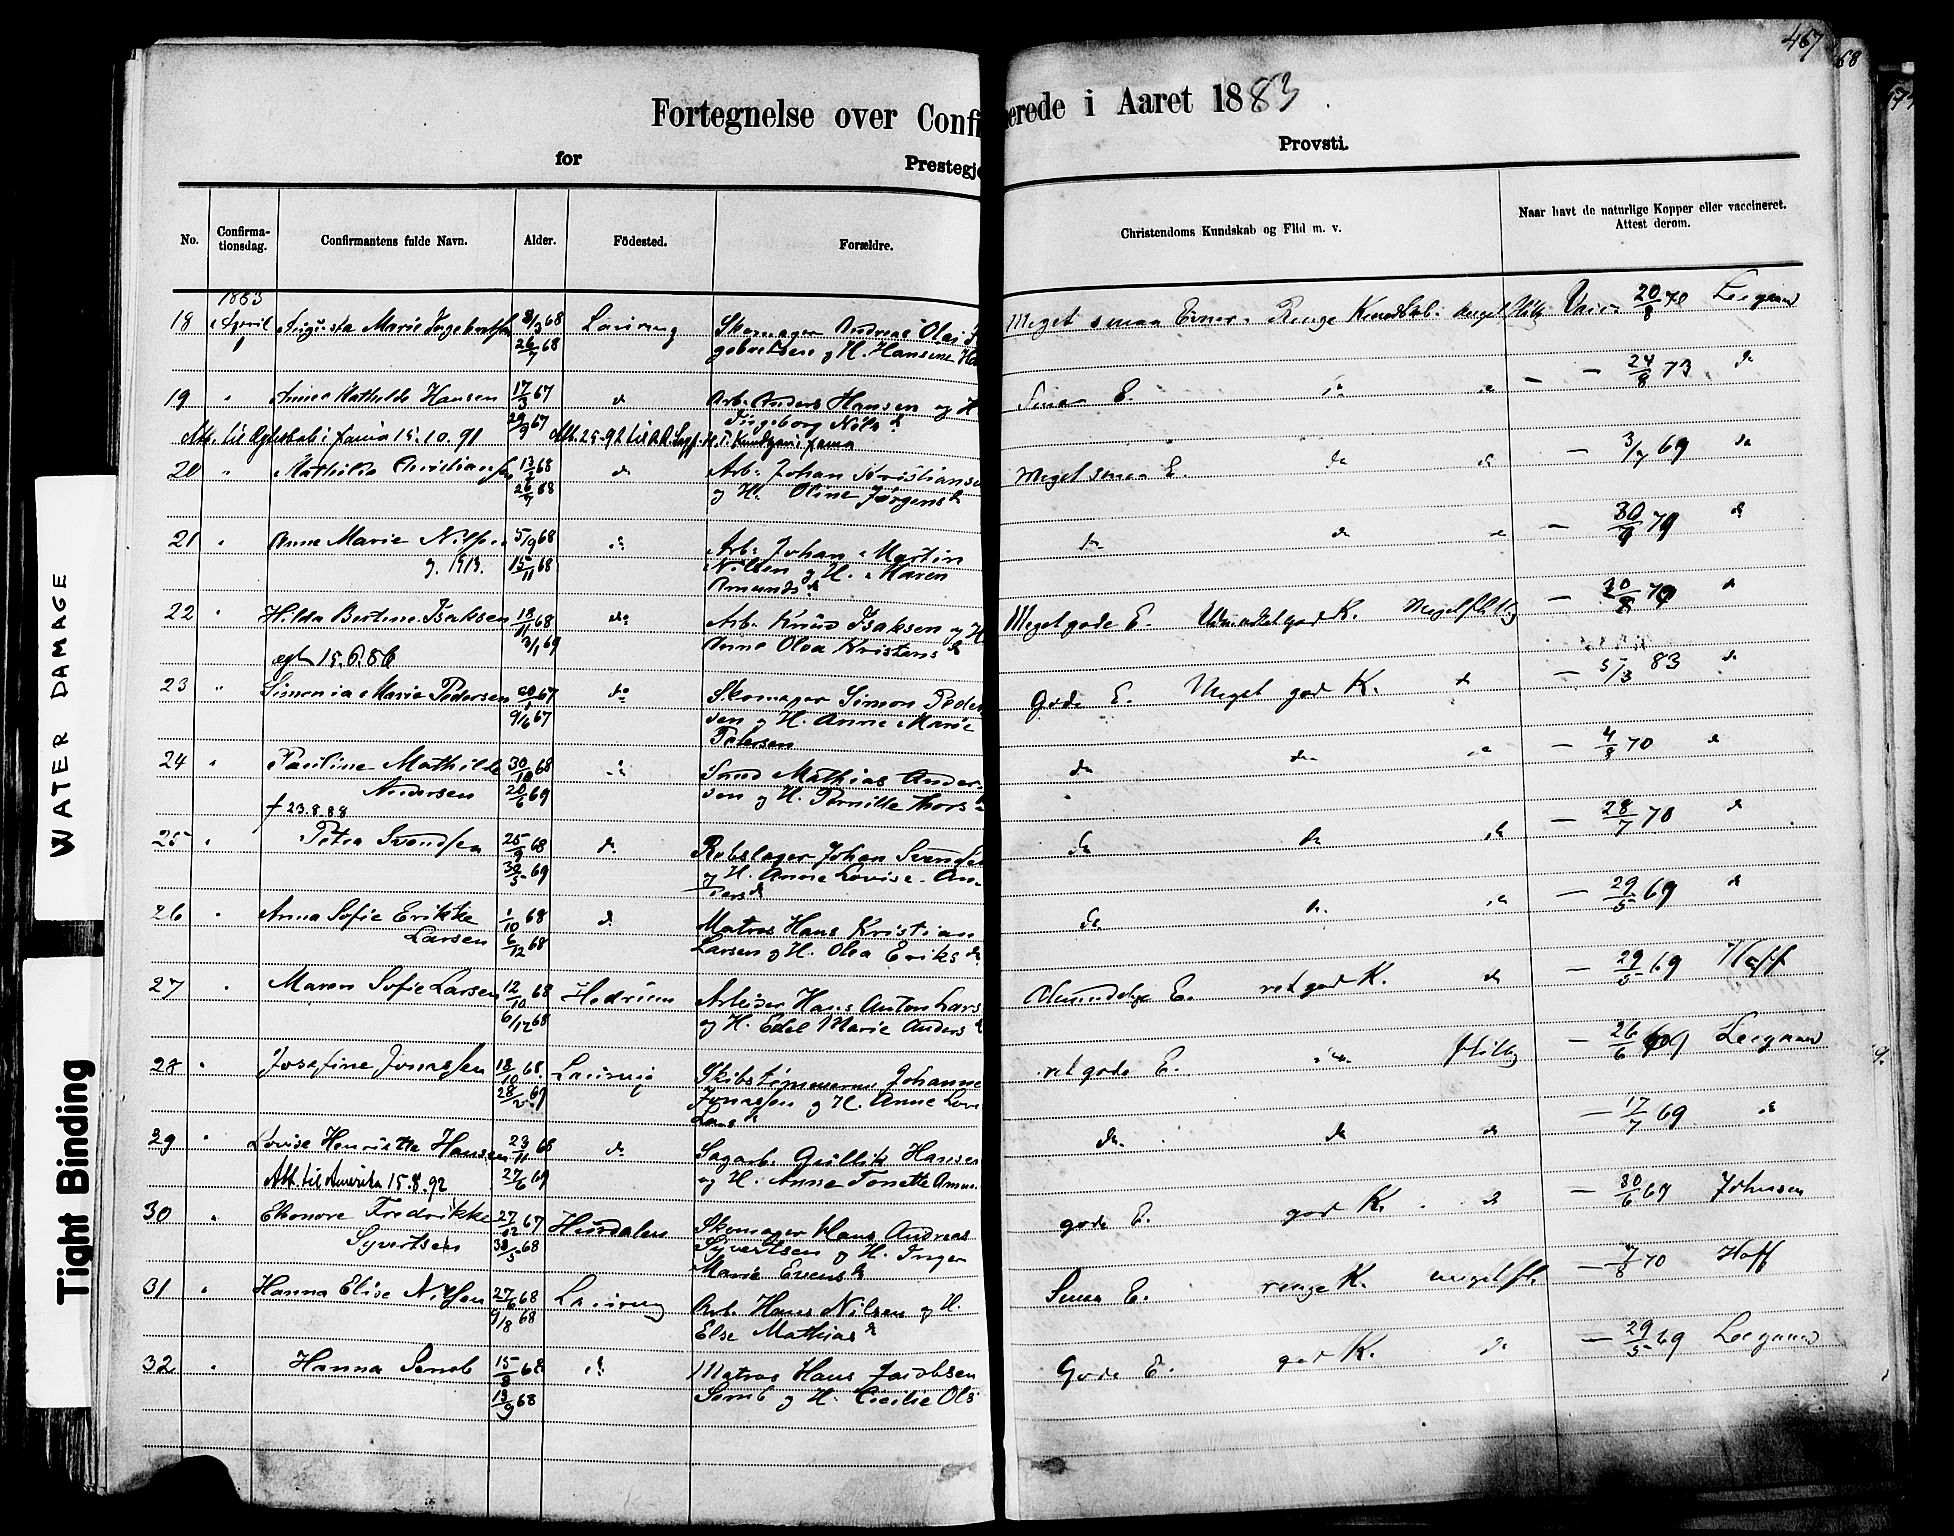 467
68
Fortegnelse over Confi
erede i Aaret 1883.
for
Prestegje
Provsti.
No. Confirma-tionsdag. Confirmantens fulde Navn. Alder. Födested. Forældre. Christendoms Kundskab og Flid m. v. Naar havt de naturlige Kopper eller vaccineret. Attest derom.
1883
18 April Augusta Marie Ingebretsen 8/3 68 Laurvig Skomager Andreas Olai Meget smaa Evner Ringe Kundskab. meget flittig Vacc. 20/8 70 Leegaard
1 26/7 68 gebretsen og H. Hansine
19 " Anne Mathilde Hansen 17/3 67 do Arb. Anders Hansen og H. Smaa E. do do — 24/8 73 do
29/9 67 Ingeborg Nils d.
Att. til Egteskab i fama 15.10.91
20 " Mathilde Christiansen 13/5 68 do Arb. Johan Kristianse Meget smaa E. do do — 3/7 69 do
26/7 68 og H. Oline Jørgens d.
21 " Anne Marie Nilsen 5/9 68 do Arb. Johan Martin do do do — 30/9 79 do
g. 1913. 15/11 68 Nilsen og H. Maren
Amunds d.
22 " Hilda Bertine Isaksen 18/11 68 do Arb. Knud Isaksen og H. Meget gode E. Udmærket god K. Meget flittig — 30/8 79 do
3/1 69 Anne Olea Kristens d.
egt. 15.6.86
23 " Simonia Marie Pedersen 67 do Skomager Simon Peder Gode E. Meget god K. do — 5/3 83 do
9/6 67 sen og H. Anne Marie
Petersen
24 " Pauline Mathilde 30/10 68 do Sand Mathias Ander- do do do — 4/8 70 do
Andersen 20/6 69 sen og H. Pernille Thors d.
† 23.8.88
25 " Petra Svendsen 25/9 68 do Rebslager Johan Svendse do do do — 28/7 70 do
30/5 69 og H. Anne Lovise An-
ders d.
26 " Anna Sofie Erikke 1/10 68 do Matros Hans Kristian do do do — 29/5 69 do
Larsen 6/12 68 Larsen og H. Olea Eriks d.
27 " Maren Sofie Larsen 12/10 68 Hedrum Arbeider Hans Anton Lars Almindelige E. ret god K. do — 29/5 69 Hoff
6/12 68 og H. Edel Marie Anders d.
28 " Josefine Jonassen 18/10 68 Laurvig Skibstømmerm. Johanne ret gode E. do flittig — 26/6 69 Leegaard
28/2 69 Jonassen og H. Anne Lovi
Lars d.
29 " Lovise Henriette Hansen 23/11 68 do Sagarb. Gullik Hansen do do do — 17/7 69 do
27/6 69 og H. Anne Tonette
Att. til Amerika 15.8.92
30 " Elenore Fredrikke 27/12 67 Hurdalen Skomager Hans Andreas gode E. god K. do — 30/6 69 Johnsen
Syvertsen 68 Syvertsen og H. Inger
Marie Evens d.
31 " Hanna Elise Nilsen 27/6 68 Laurvig Arb. Hans Nilsen og H. Smaa E. ringe K. meget fl. — 7/8 70 Hoff
9/8 68 Else Mathias d.
32 " Hanna Semb 15/8 68 do Matros Hans Jacobsen Gode E. god K. do — 29/5 69 Leegaard
13/9 68 Semb og H. Cicilie Ols
WATER DAMAGE
Tight Binding